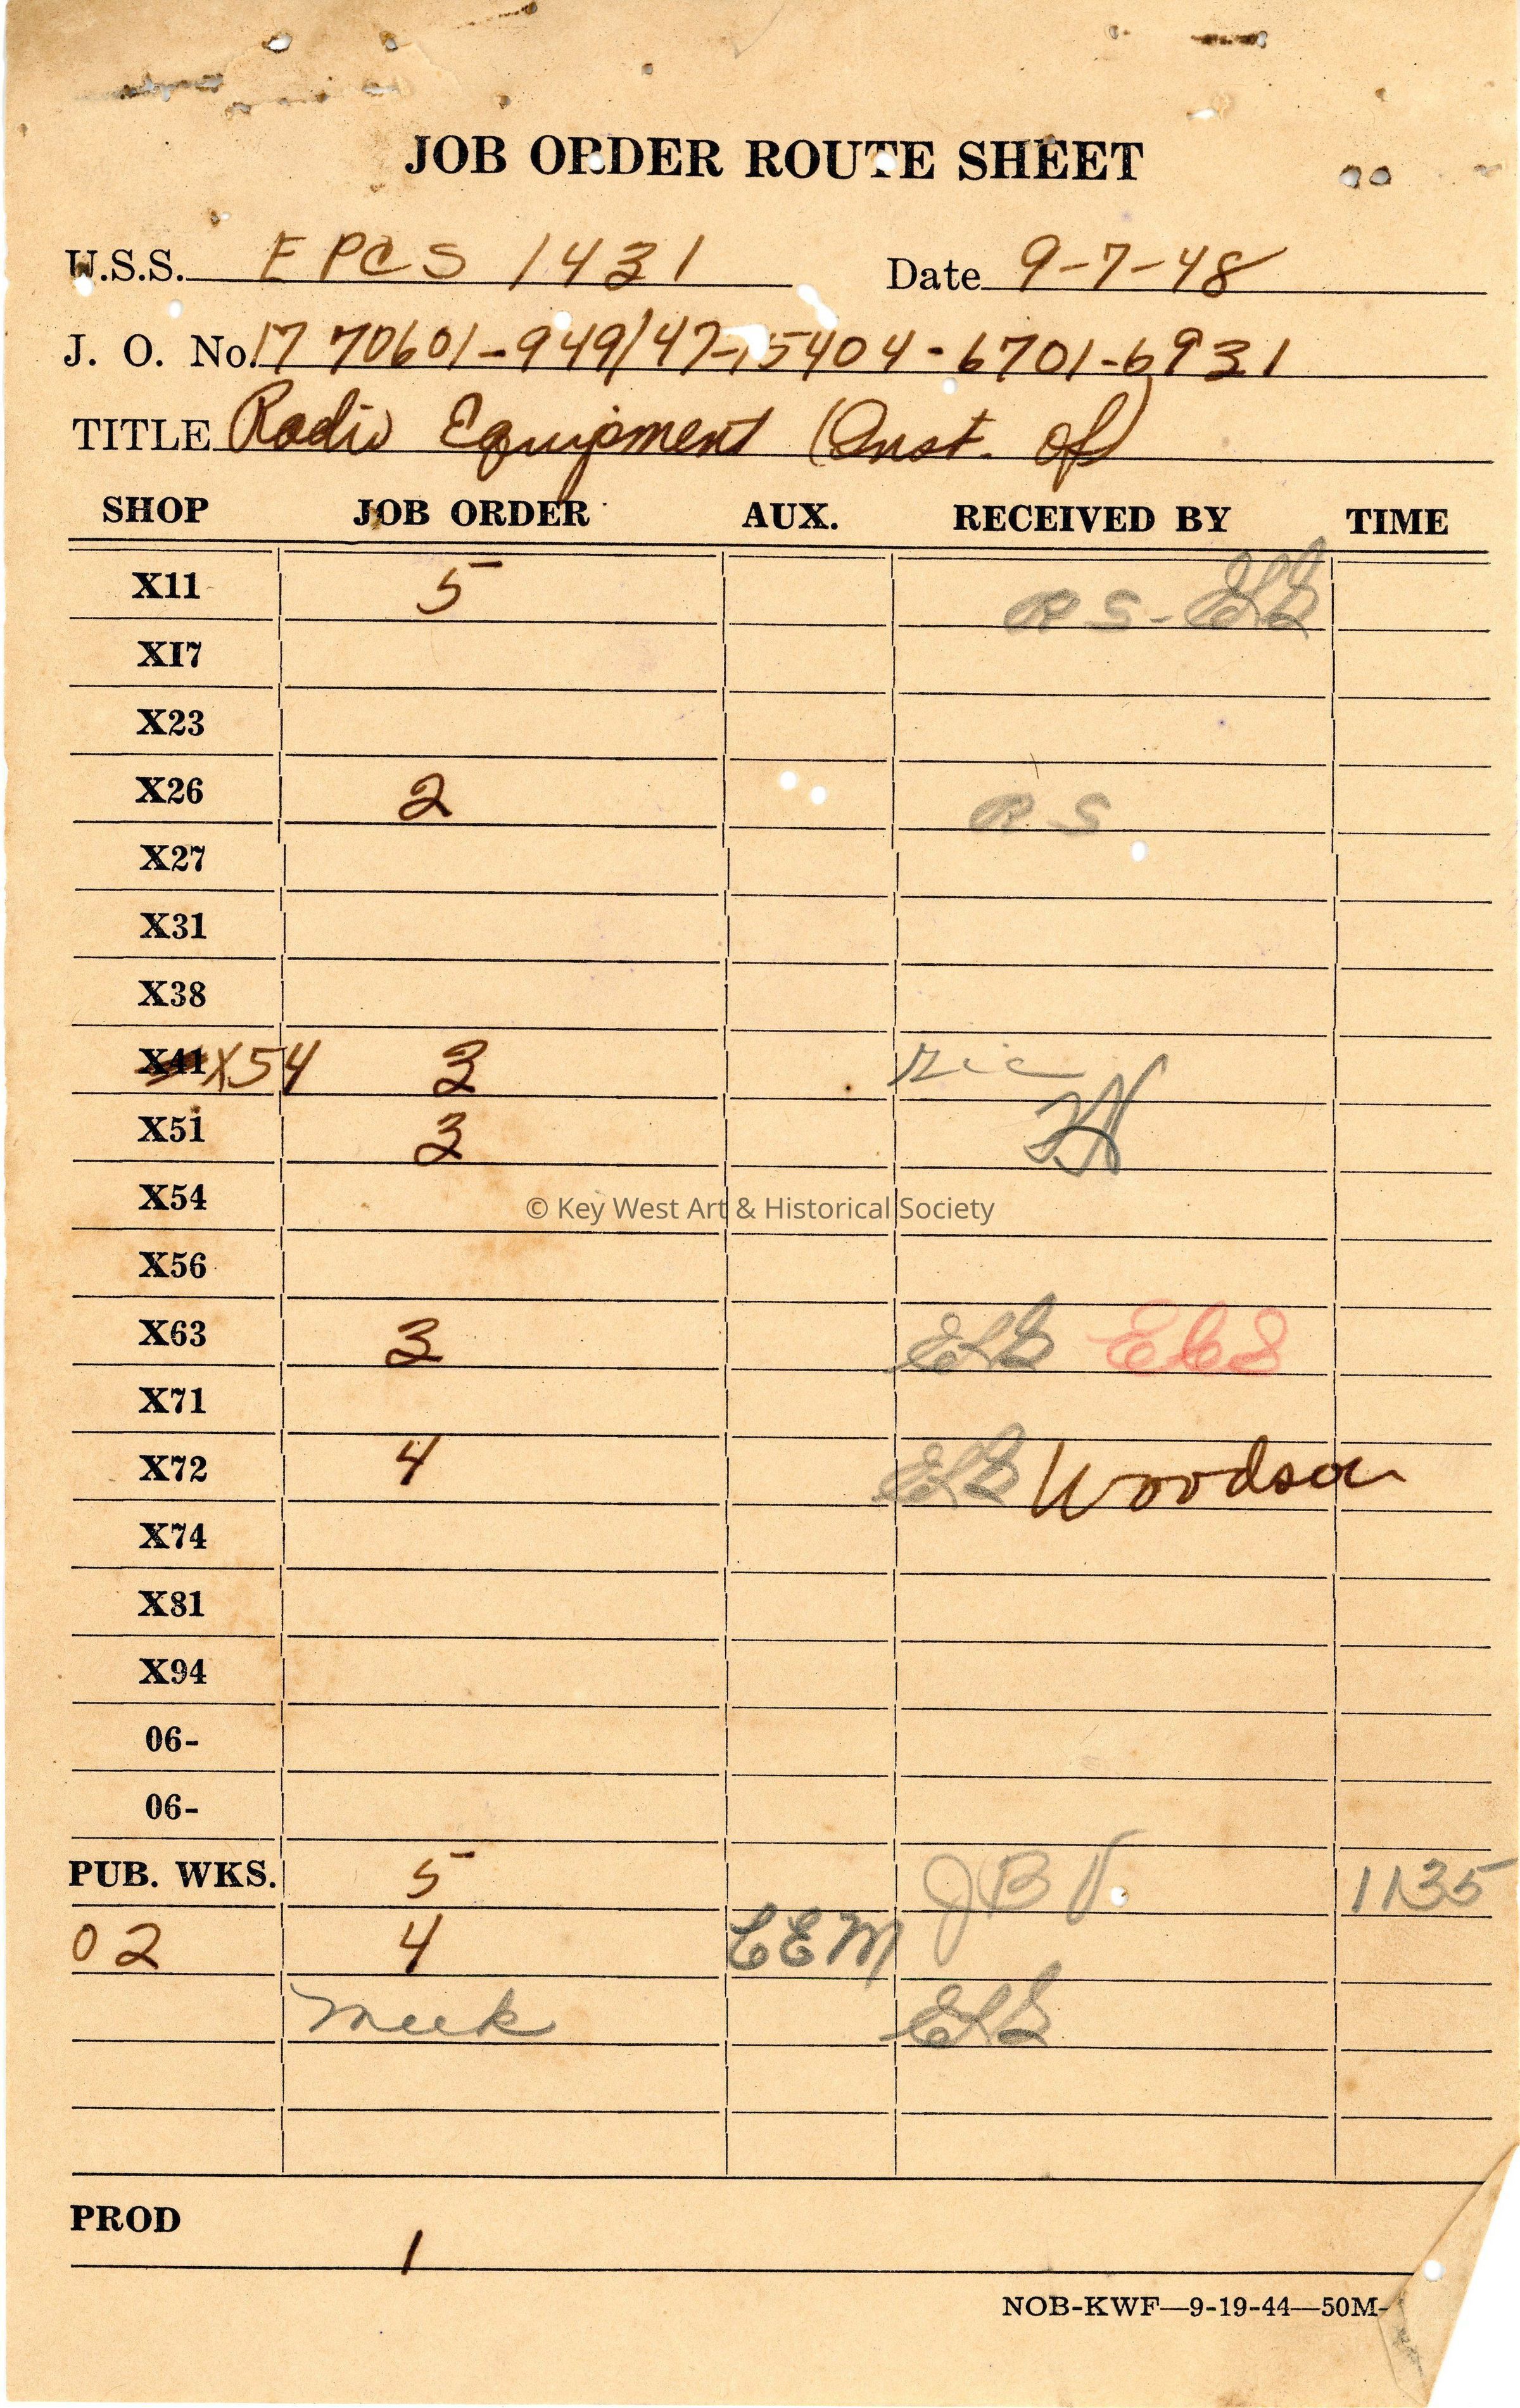 JOB ORDER ROUTE SHEET
U.S.S. EPCS 1431 Date 9-7-48
J. O. No. 17 70601-949/47-15404-6701-6931
TITLE Radio Equipment (Inst. of)
SHOP JOB ORDER AUX. RECEIVED BY TIME
X11 5 RS-
XI7
X23
X26 2 RS
X27
X31
X38
X41 X54 3
X51 3
X54
© Key West Art & Historical Society
X56
X63 3
X71
X72 4 Woodson
X74
X81
X94
06-
06-
PUB. WKS. 5 JBV. 1135
02 4 CEM
Meek
PROD 1
NOB-KWF—9-19-44—50M-